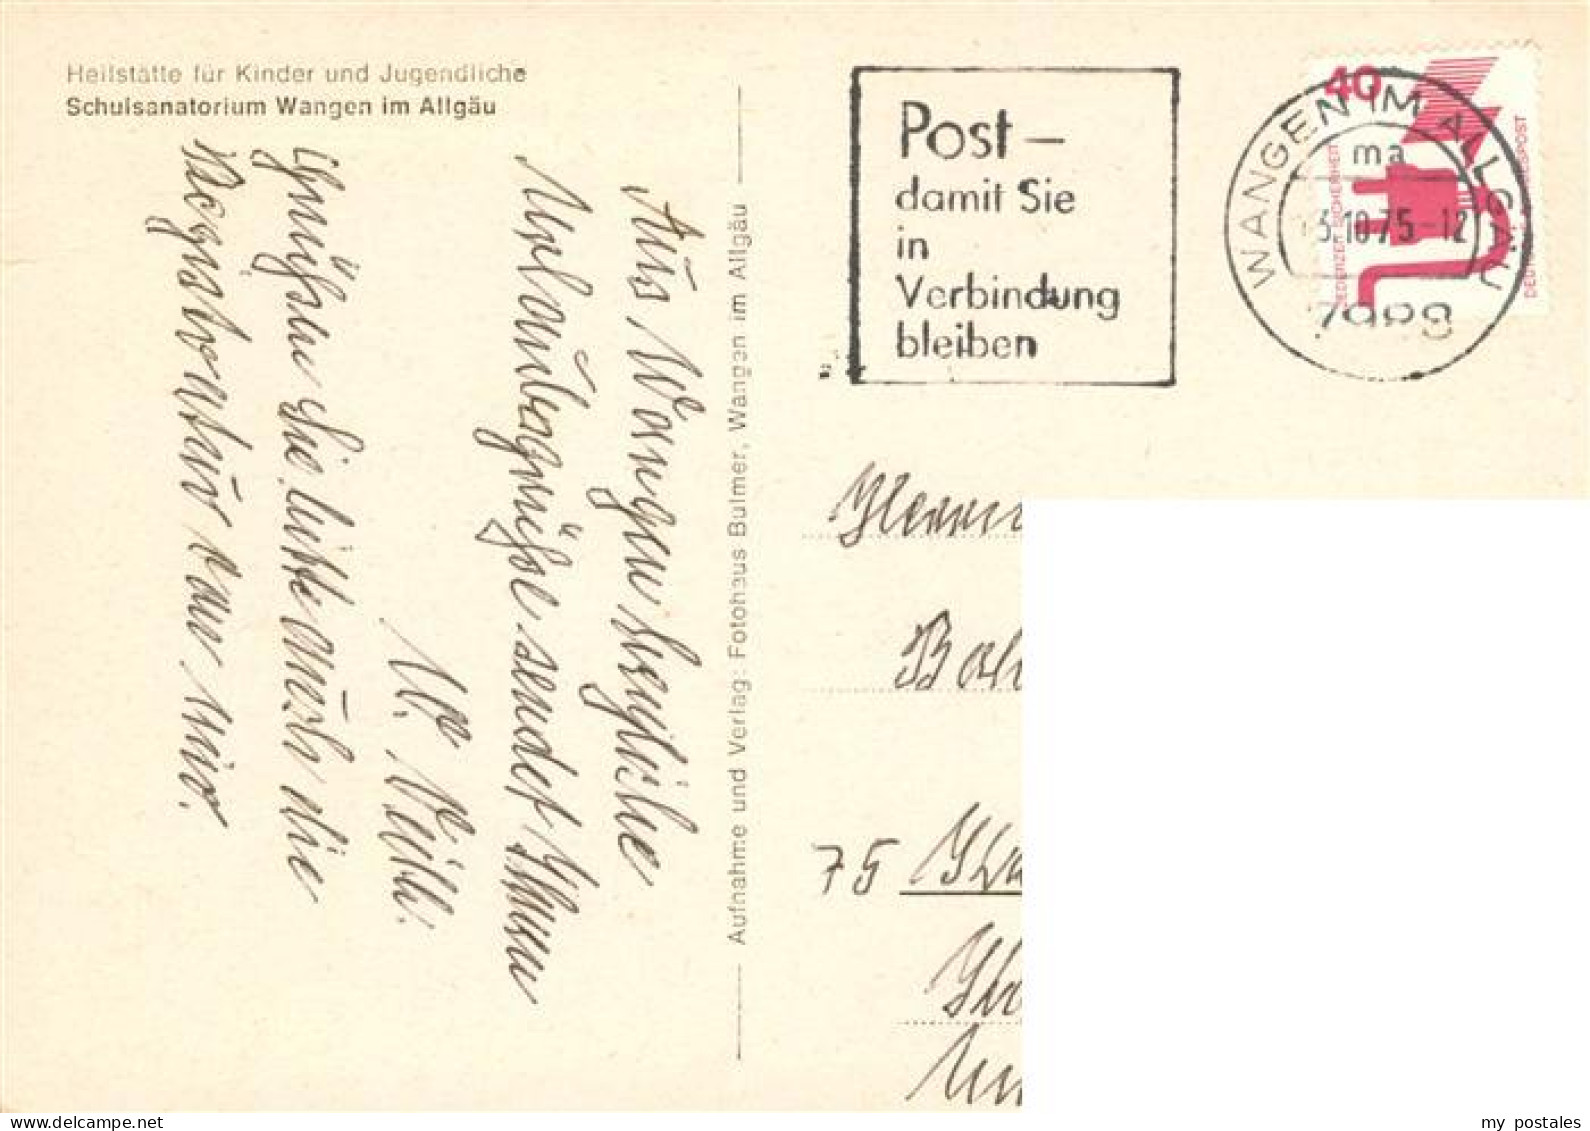 Heilstätte für Kinder und Jugendliche
Schulsanatorium Wangen im Allgäu
Aus Wangen herzliche
Urlaubsgrüße sendet Ihnen
Grüßen Sie bitte auch die
Registratur von mir.
Aufnahme und Verlag: Fotohaus Bulmer, Wangen im Allgäu
Post –
damit Sie
in
Verbindung
bleiben
WANGEN IM ALLGÄU
ma
3.10.75-12
7988
40
JEDERZEIT SICHERHEIT
Herrn
75
my postales